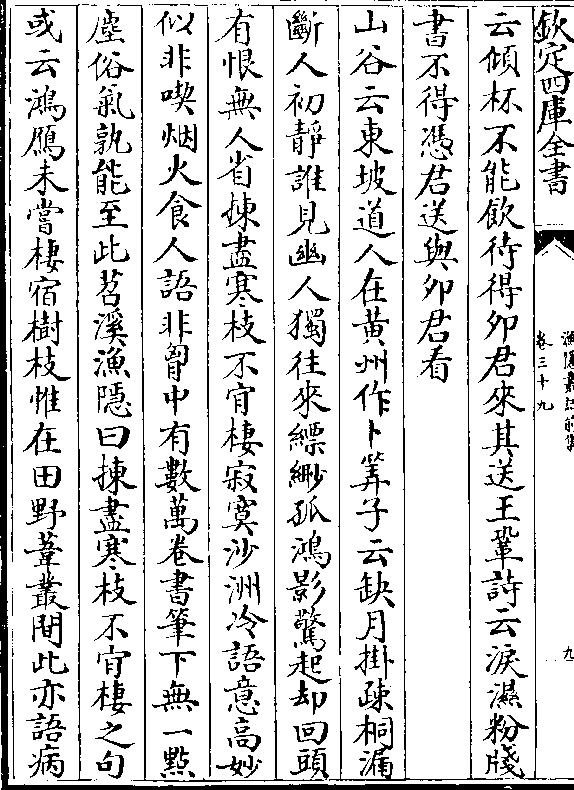 欽定四庫全書
漁隱叢話前集
卷三十九
九
云傾杯不能飲待得卯君來其送王鞏詩云淚濕粉牋
書不得憑君送與卯君看
山谷云東坡道人在黄州作卜筭子云缺月掛疎桐漏
斷人初靜誰見幽人獨往來縹緲孤鴻影驚起却回頭
有恨無人省揀盡寒枝不肯棲寂寞沙洲冷語意高妙
似非喫烟火食人語非胷中有數萬卷書筆下無一㸃
塵俗氣孰能至此苕溪漁隱曰揀盡寒枝不肯棲之句
或云鴻鴈未嘗棲宿樹枝惟在田野葦叢間此亦語病